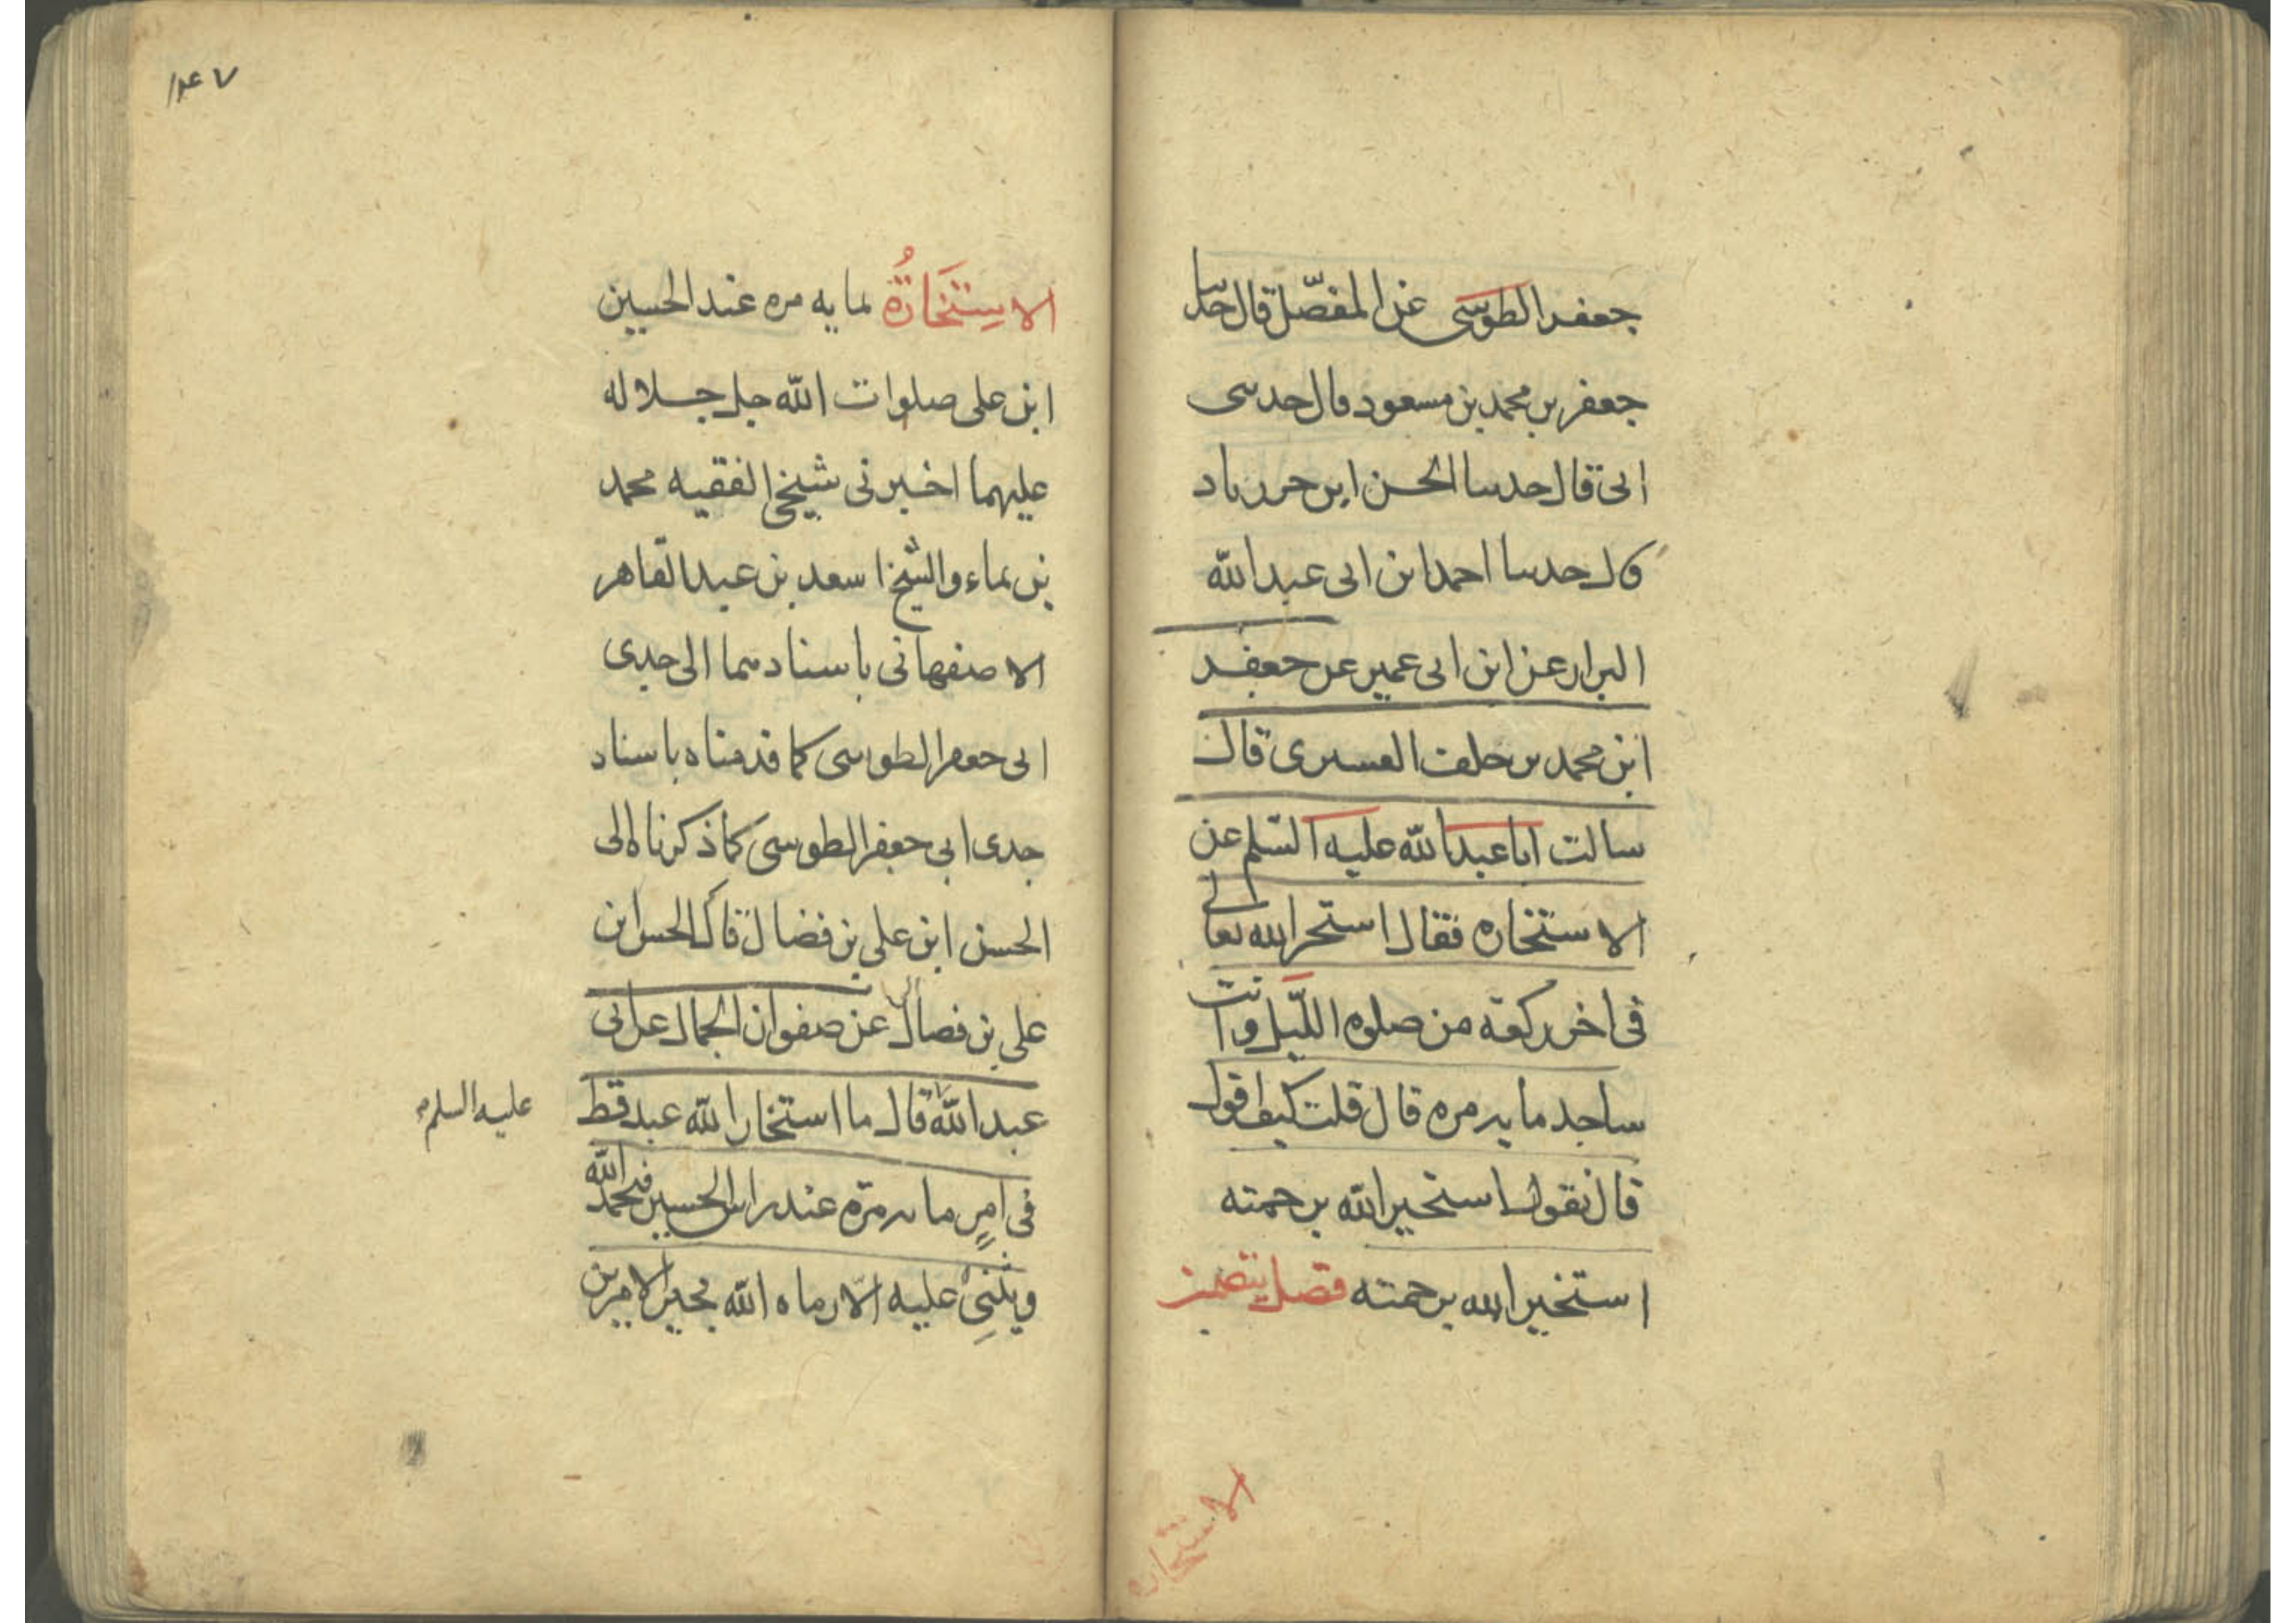 جعفر الطوسى عن المفضّل قال حدثنا
جعفر بن محمد بن مسعود قال حدثنى
ابى قال حدثنا الحسن ابن خرزاد
قال حدثنا احمد ابن ابى عبد الله
البزاز عن ابن ابى عمير عن جعفر
ابن محمد بن خلف العسيرى قال
سالت ابا عبد الله عليه السّلم عن
الاستخاره فقال استخر الله تعالى
فى اخر ركعة من صلوه اللّيل وانت
ساجد مايه مره قال قلت كيف اقول
قال تقول استخير الله برحمته
استخير الله برحمته فصل يتضمن
الاستخاره
١٤٧
الاسِتخَارَةُ بمايه مره عند الحسين
ابن على صلوات الله جل جلاله
عليهما اخبرنى شيخى الفقيه محمد
بن نماء والشيخ اسعد بن عبد القاهر
الاصفهانى باسنادهما الى جدى
ابى جعفر الطوسى كما قدمناه باسناد
جدى ابى جعفر الطوسى كما ذكرناه الى
الحسن ابن على بن فضال قال الحسن ابن
على بن فضال عن صفوان الجمال عن ابى
عبد الله قال ما استخار الله عبد قط
عليه السلم
فى امرٍ مايه مرّه عند راس الحسين فيحمد الله
ويثنى عليه الّا رماه الله بخير الامرين